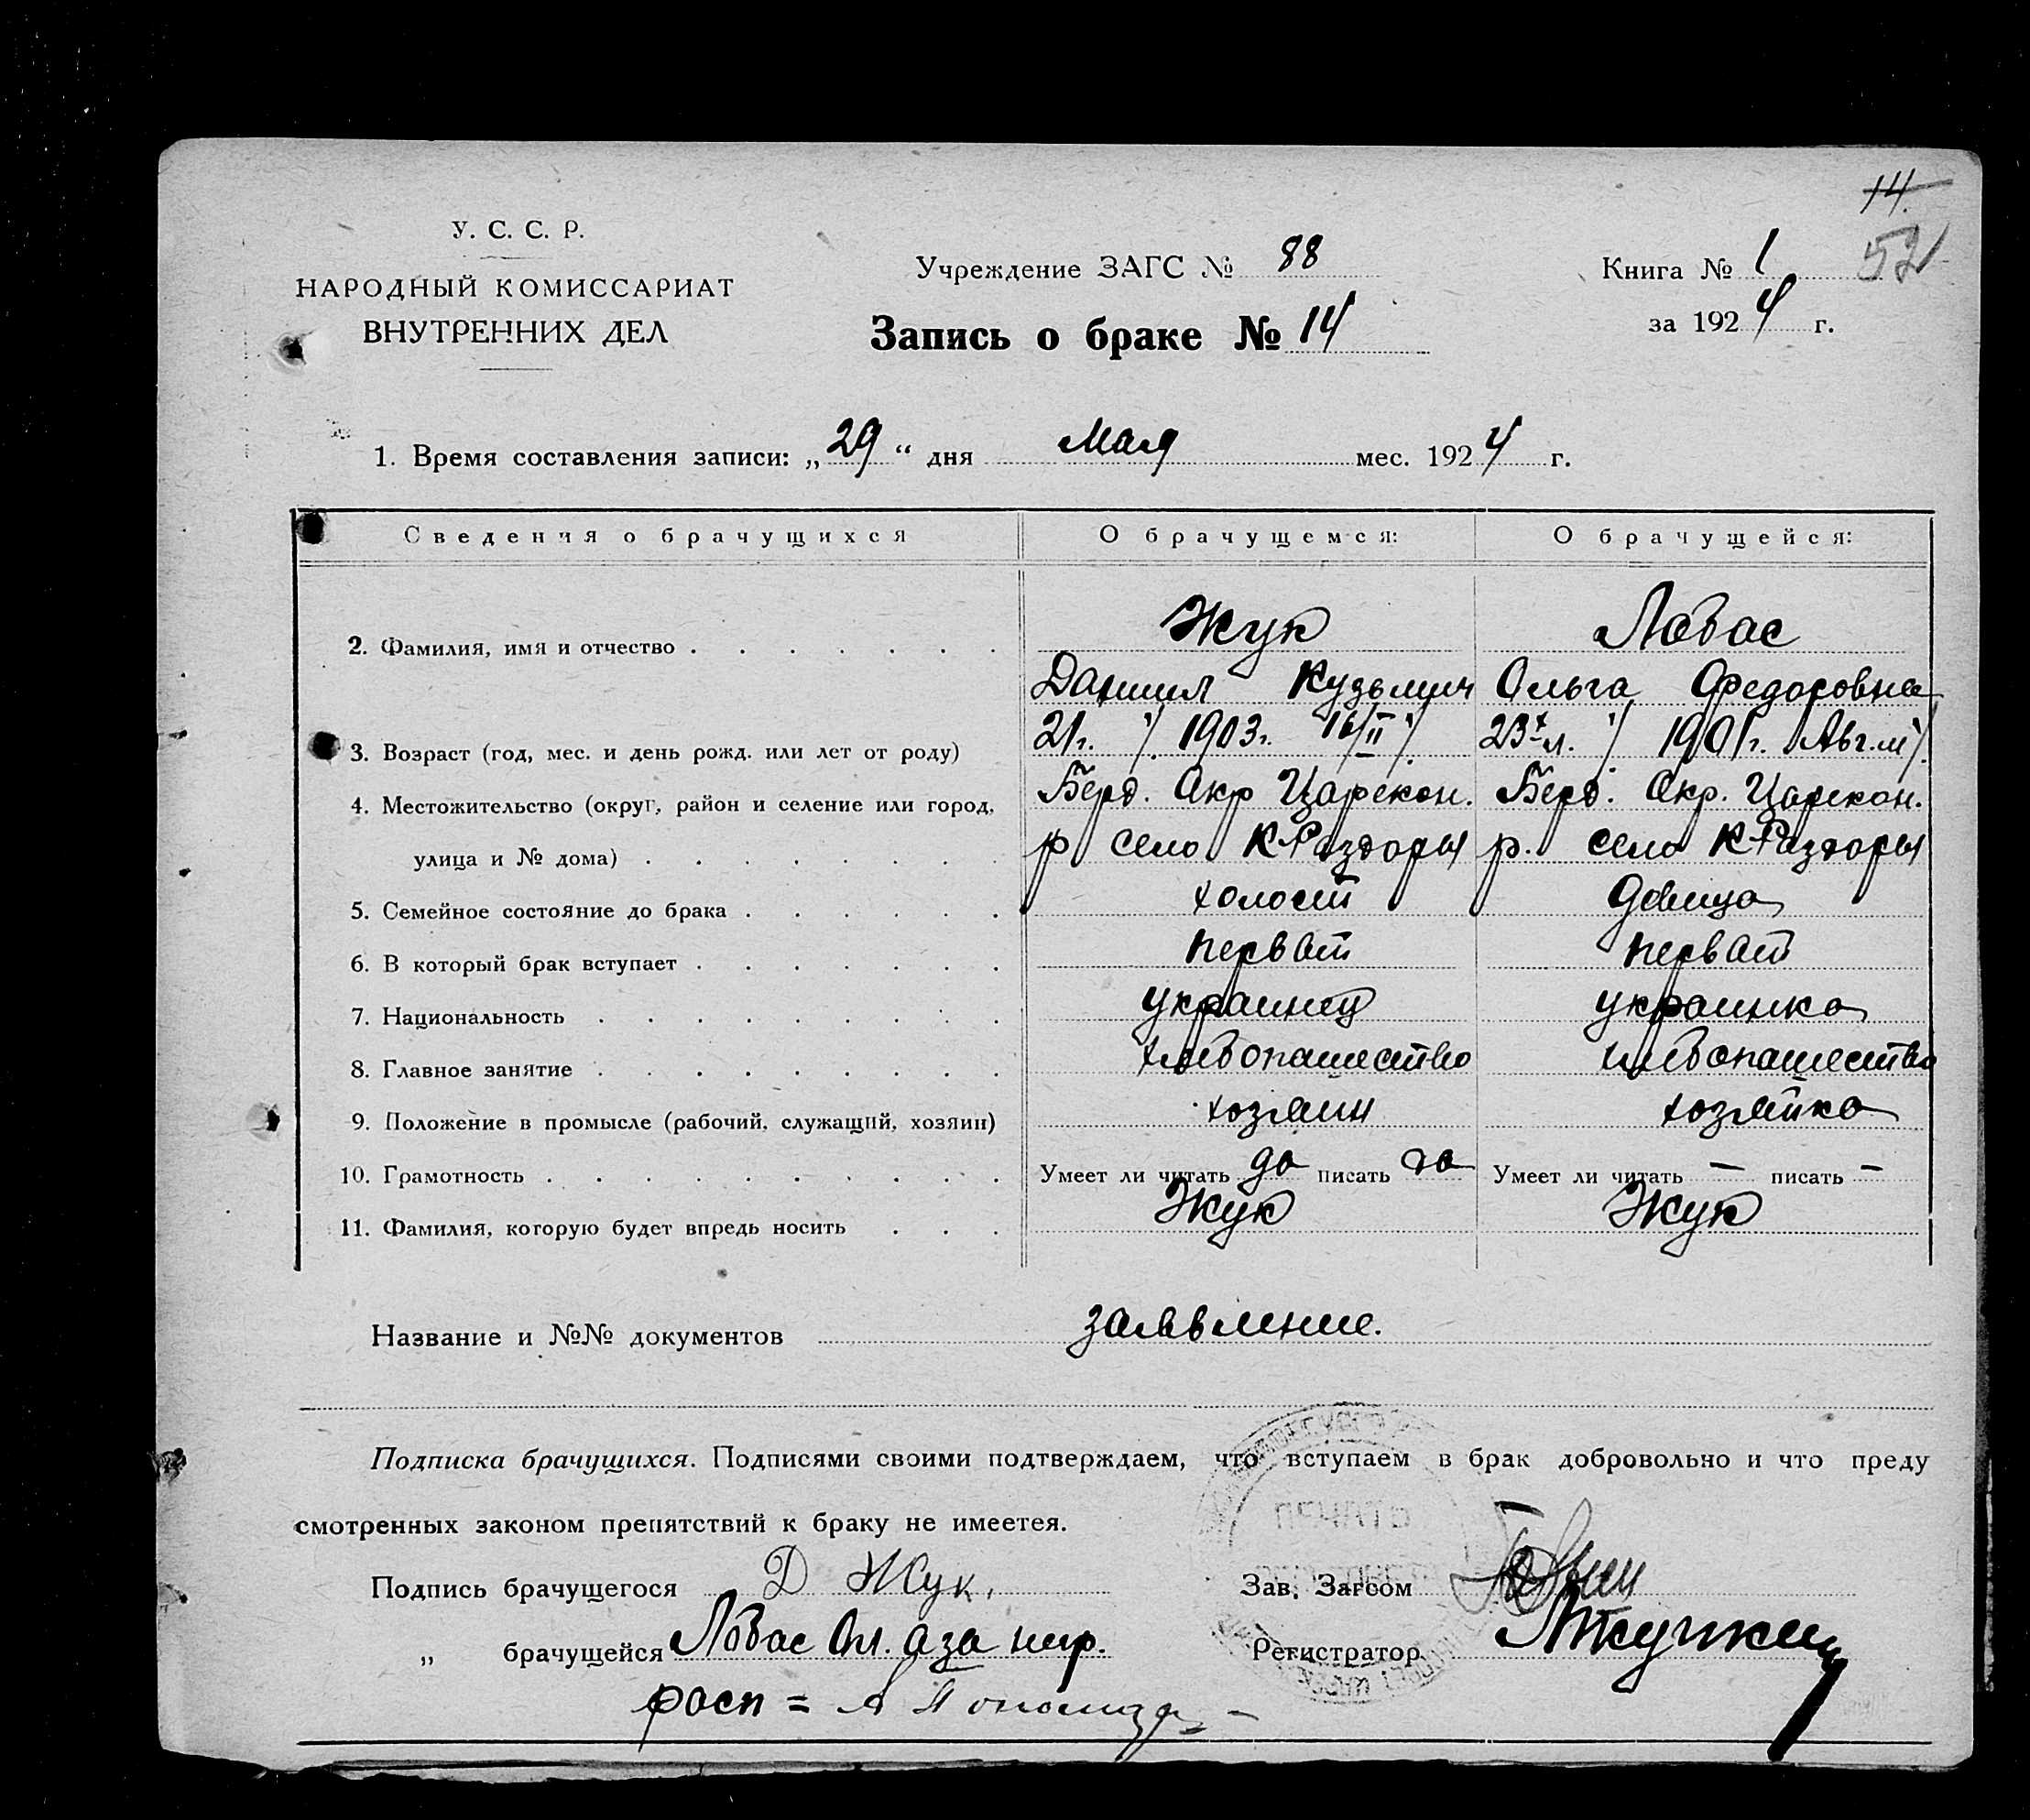 14.
52
У. С. С. Р.
НАРОДНЫЙ КОМИССАРИАТ
ВНУТРЕННИХ ДЕЛ
Учреждение ЗАГС № 88
Запись о браке № 14
Книга № 1
за 1924 г.
1. Время составления записи: „29“ дня Мая мес. 1924 г.
Сведения о брачущихся О брачущемся: О брачущейся:
2. Фамилия, имя и отчество Жук Лобас
Даниил Кузьмич Ольга Федоровна
3. Возраст (год, мес. и день рожд. или лет от роду) 21г. 1903г. 16/II 23 л. 1901г. Авг.м
4. Местожительство (округ, район и селение или город, Берд. Окр Царекон. Берд. Окр. Царекон.
улица и № дома) р село К-Раздоры р. село К-Раздоры
5. Семейное состояние до брака холост девица
6. В который брак вступает первый первый
7. Национальность украинец украинка
8. Главное занятие хлебопашество хлебопашество
9. Положение в промысле (рабочий, служащий, хозяин) хозяин хозяйка
10. Грамотность Умеет ли читать да писать да Умеет ли читать — писать —
11. Фамилия, которую будет впредь носить Жук Жук
Название и №№ документов заявление.
Подписка брачущихся. Подписями своими подтверждаем, что вступаем в брак добровольно и что преду
смотренных законом препятствий к браку не имеетея.
Подпись брачущегося Д Жук. Зав. Загсом
„ брачущейся Лобас Ол. а за негр. Регистратор
росп =
ПЕЧАТЬ